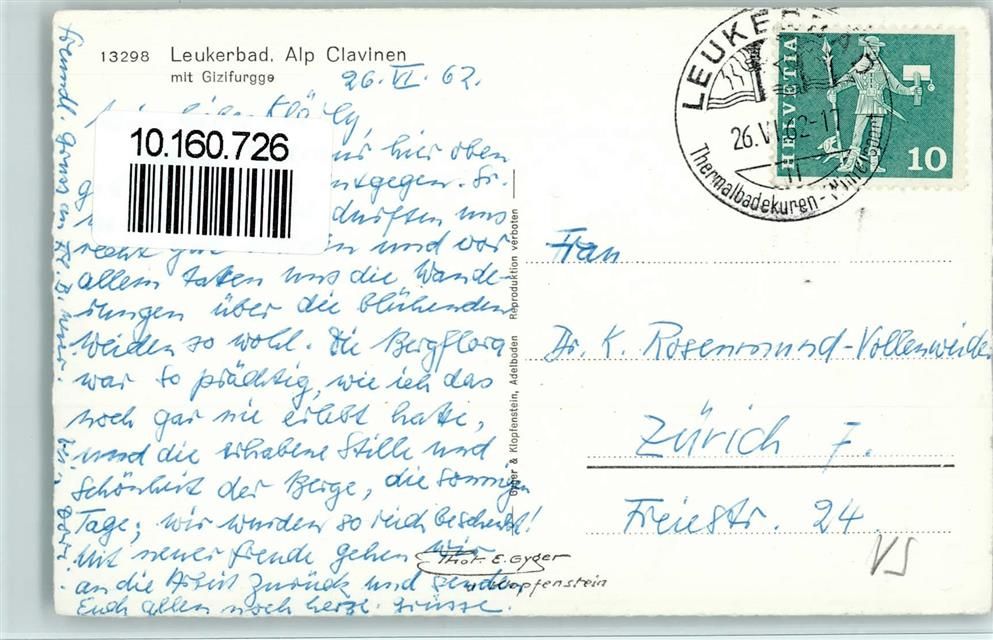 13298 Leukerbad, Alp Clavinen
mit Gizifurgge
26. VI. 62.
10.160.726
hier oben
entgegen.
durften uns
recht und vor
allem taten uns die Wande-
rungen über die blühenden
Weiden so wohl. Die Bergflora
war so prächtig, wie ich das
noch gar nie erlebt hatte,
und die erhabene Stille und
Schönheit der Berge, die sonnigen
Tage; wir wurden so reich beschenkt!
Mit neuer Freude gehen wir
an die Arbeit zurück und senden
Euch allen noch herzl. Grüsse.
freundl. Gruss an
Gyger & Klopfenstein, Adelboden Reproduktion verboten
Phot. E. Gyger
Klopfenstein
LEUKERBAD
26.VI.62-17
Thermalbadekuren-Wintersport
HELVETIA
10
Frau
Dr. K. Rosenmund-Vollenweider
Zürich 7.
Freiestr. 24.
VS